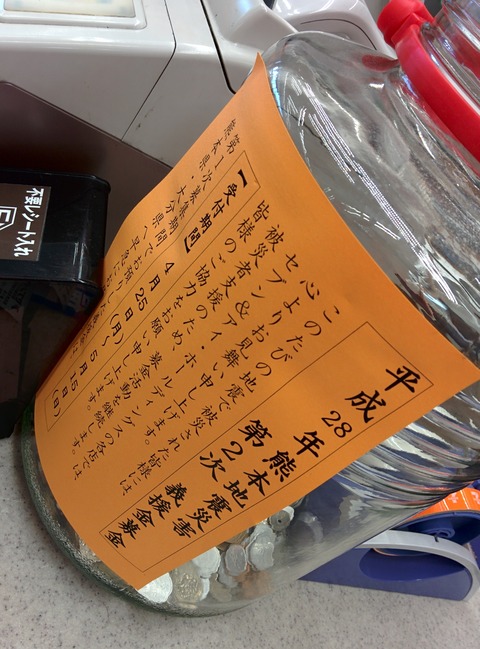 平成28年熊本地震災害
第2次義援金募金
このたびの地震で被災された皆様には
心よりお見舞い申し上げます。
セブン&アイ・ホールディングスの各店では
被災者支援のため、募金活動を継続します。
皆様のご協力をお願い申し上げます。
【受付期間】4月25日(月)〜5月15日(日)
第1次募集期間でお預りした
熊本県・大分県へ
不要レシート入れ